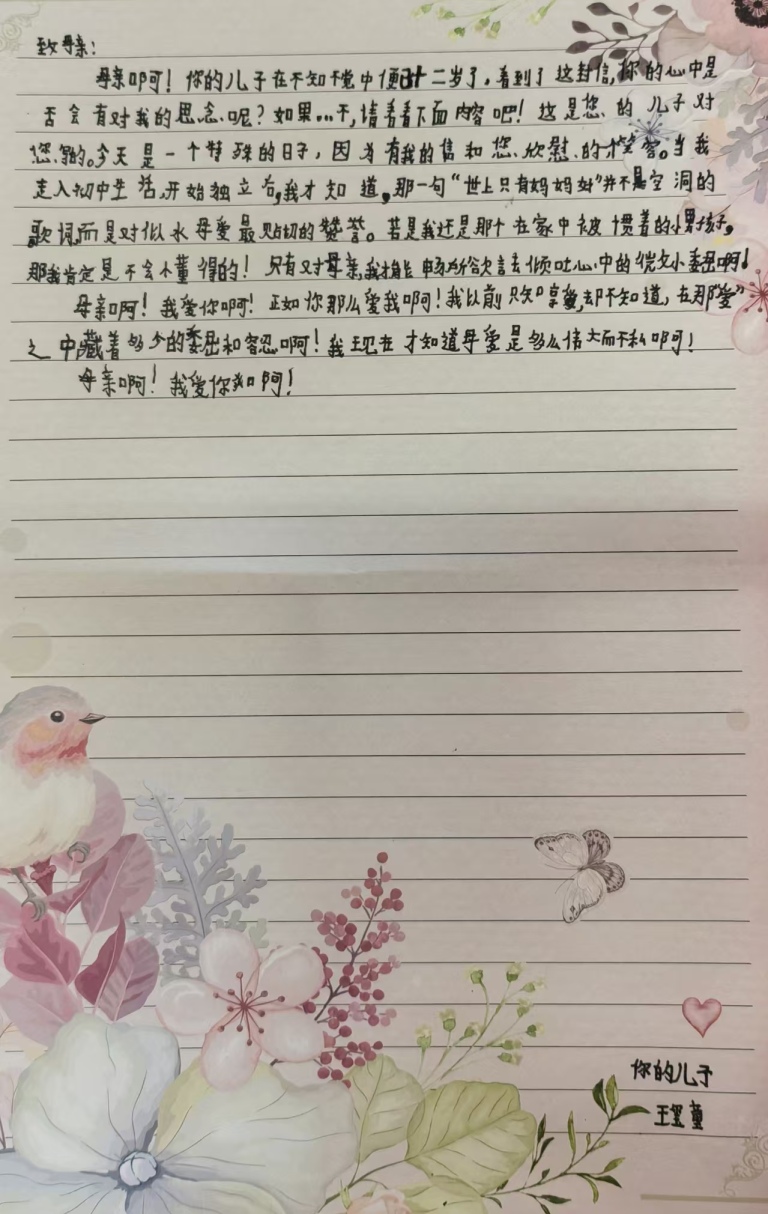 致母亲：
母亲啊！你的儿子在不知不觉中便十二岁了，看到了这封信，你的心中是
否会有对我的思念呢？如果…干，请看看下面内容吧！这是您的儿子对
您的。今天是一个特殊的日子，因为有我的信和您欣慰的笑容。当我
走入初中生活，开始独立后，我才知道，那一句“世上只有妈妈好”并不是空洞的
歌词，而是对似水母爱最贴切的赞誉。若是我还是那个在家中被惯着的小男孩子，
那我肯定是不会懂得的！只有对母亲，我才能畅所欲言去倾吐心中的小委屈啊！
母亲啊！我爱你啊！正如你那么爱我啊！我以前只知享受，却不知道，在那“爱”
之中藏着多少的委屈和容忍啊！我现在才知道母爱是多么伟大而不私啊！
母亲啊！我爱你啊！
你的儿子
王昱童